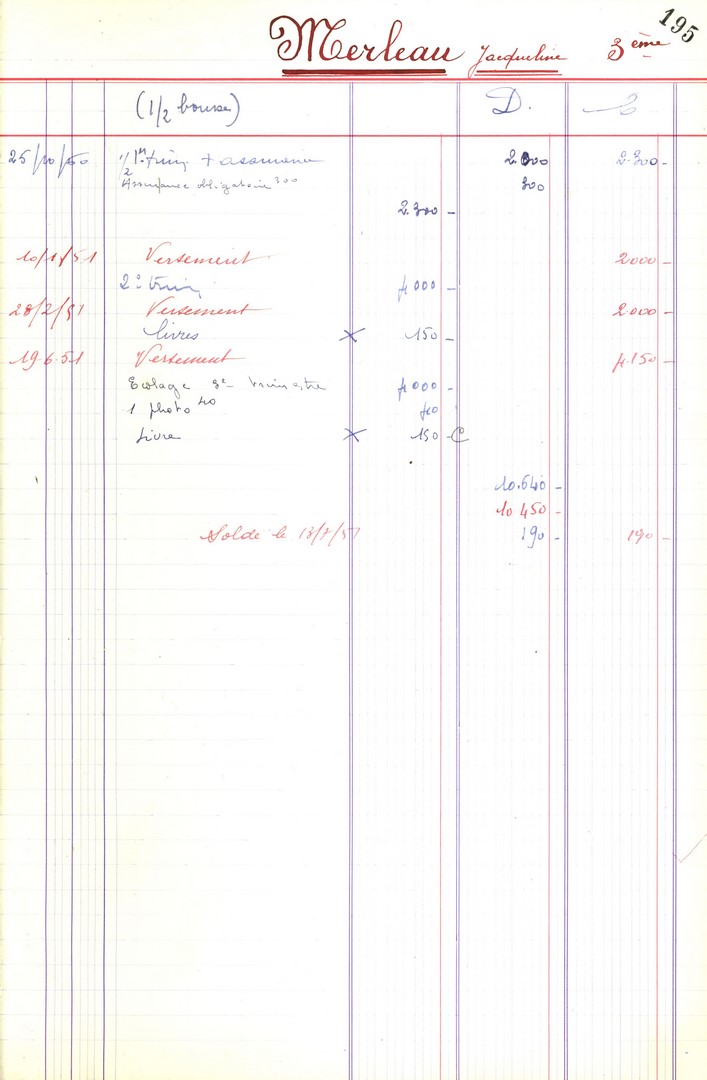 195
Merleau Jacqueline 3ème
(1/2 bourse) D. C
25/10/50 1/2 1er trim + assurance 2000 2.300-
Assurance obligatoire 300 300
2.300-
10/1/51 Versement 2000-
2e trim 4000-
28/2/51 Versement 2.000-
livres × 150-
19.6.51 Versement 4.150-
Ecolage 3e trimestre 4000-
1 photo 40 40
Livre × 150-C
10.640-
10 450-
Solde le 13/7/51 190- 190-